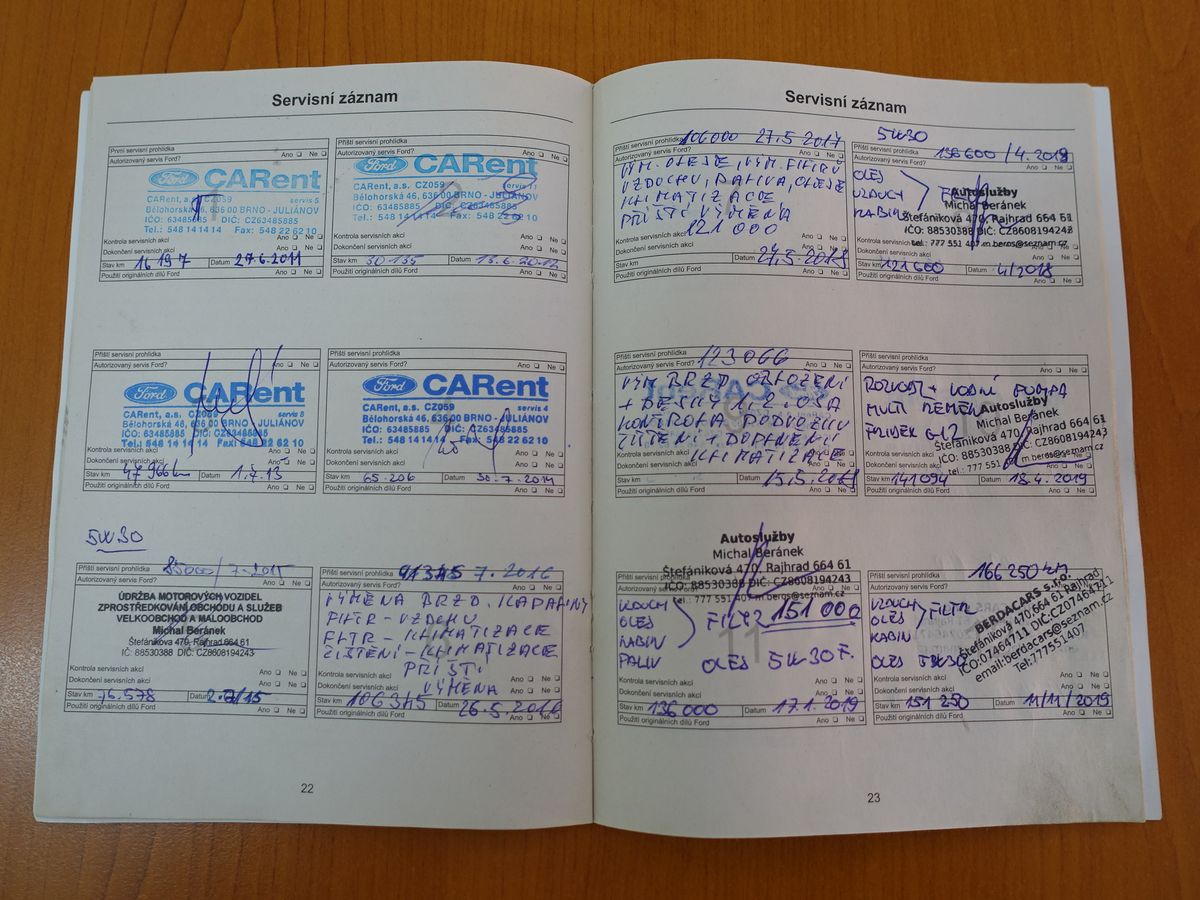 Servisní záznam
První servisní prohlídka
Autorizovaný servis Ford? Ano Ne
Ford CARent
CARent, a.s. CZ059 servis 5
Bělohorská 46, 636 00 BRNO - JULIÁNOV
IČO: 63485885 DIČ: CZ63485885
Tel.: 548 14 14 14 Fax: 548 22 62 10
Kontrola servisních akcí Ano Ne
Dokončení servisních akcí Ano Ne
Stav km 16 197 Datum 27.6.2011
Použití originálních dílů Ford Ano Ne
Příští servisní prohlídka
Autorizovaný servis Ford? Ano Ne
Ford CARent
CARent, a.s. CZ059 servis 11
Bělohorská 46, 636 00 BRNO - JULIÁNOV
IČO: 63485885 DIČ: CZ63485885
Tel.: 548 14 14 14 Fax: 548 22 62 10
Kontrola servisních akcí Ano Ne
Dokončení servisních akcí Ano Ne
Stav km 30 135 Datum 13.6.2012
Použití originálních dílů Ford Ano Ne
Příští servisní prohlídka
Autorizovaný servis Ford? Ano Ne
Ford CARent
CARent, a.s. CZ059 servis 8
Bělohorská 46, 636 00 BRNO - JULIÁNOV
IČO: 63485885 DIČ: CZ63485885
Tel.: 548 14 14 14 Fax: 548 22 62 10
Kontrola servisních akcí Ano Ne
Dokončení servisních akcí Ano Ne
Stav km 47 966 km Datum 1.7.13
Použití originálních dílů Ford Ano Ne
Příští servisní prohlídka
Autorizovaný servis Ford? Ano Ne
Ford CARent
CARent, a.s. CZ059 servis 4
Bělohorská 46, 636 00 BRNO - JULIÁNOV
IČO: 63485885 DIČ: CZ63485885
Tel.: 548 14 14 14 Fax: 548 22 62 10
Kontrola servisních akcí Ano Ne
Dokončení servisních akcí Ano Ne
Stav km 65 206 Datum 30.7.2014
Použití originálních dílů Ford Ano Ne
5W30
Příští servisní prohlídka 85000/7.2015
Autorizovaný servis Ford? Ano Ne
ÚDRŽBA MOTOROVÝCH VOZIDEL
ZPROSTŘEDKOVÁNÍ OBCHODU A SLUŽEB
VELKOOBCHOD A MALOOBCHOD
Michal Beránek
Štefánikova 470, Rajhrad 664 61
IČ: 88530388 DIČ: CZ8608194243
Kontrola servisních akcí Ano Ne
Dokončení servisních akcí Ano Ne
Stav km 76.578 Datum 2.7/15
Použití originálních dílů Ford Ano Ne
Příští servisní prohlídka 91345 7.2016
Autorizovaný servis Ford? Ano Ne
VÝMĚNA BRZD. KAPALINY
FILTR - VZDUCHU
FILTR - KLIMATIZACE
ČIŠTĚNÍ - KLIMATIZACE
PŘÍŠTÍ
VÝMĚNA
Stav km 106345 Datum 26.5.2016
Použití originálních dílů Ford Ano Ne
22
Servisní záznam
Příští servisní prohlídka 106000 27.5 2017
Autorizovaný servis Ford? Ano Ne
VÝM. OLEJE, VÝM. FILTRŮ
VZDUCHU, PALIVA, OLEJE
KLIMATIZACE
PŘÍŠTÍ VÝMĚNA
121 000
Kontrola servisních akcí Ano Ne
Dokončení servisních akcí Ano Ne
Stav km Datum
Použití originálních dílů Ford Ano Ne
5W30
Příští servisní prohlídka 136600 / 4.2019
Autorizovaný servis Ford? Ano Ne
OLEJ
VZDUCH
KABIN
Autoslužby
Michal Beránek
Štefánikova 470, Rajhrad 664 61
IČO: 88530388 DIČ: CZ8608194243
tel.: 777 551 407 m.beros@seznam.cz
Kontrola servisních akcí
Dokončení servisních akcí Ano Ne
Stav km 121600 Datum 4/2018
Použití originálních dílů Ford Ano Ne
Příští servisní prohlídka 123066
Autorizovaný servis Ford? Ano Ne
VÝM BRZD OBLOŽENÍ
KONTROLA PODVOZKU
ČIŠTĚNÍ + DOPLNĚNÍ
KLIMATIZACE
Stav km Datum
Použití originálních dílů Ford Ano Ne
Příští servisní prohlídka
Autorizovaný servis Ford? Ano Ne
ROZVODY + VODNÍ PUMPA
MULTI ŘEMEN
G12
Autoslužby
Michal Beránek
Štefánikova 470, Rajhrad 664 61
IČO: 88530388 DIČ: CZ8608194243
tel.: 777 551 407 m.beros@seznam.cz
Kontrola servisních akcí
Dokončení servisních akcí
Stav km 141094 Datum 18.4.2019
Použití originálních dílů Ford Ano Ne
Autoslužby
Michal Beránek
Štefánikova 470, Rajhrad 664 61
IČO: 88530388 DIČ: CZ8608194243
m.beros@seznam.cz
Příští servisní prohlídka
Autorizovaný servis Ford?
VZDUCH
OLEJ
KABIN
PALIV
FILTR 151 000
OLEJ 5W30 F.
Kontrola servisních akcí Ano Ne
Dokončení servisních akcí Ano Ne
Stav km 136000 Datum 17.1.2019
Použití originálních dílů Ford Ano Ne
Příští servisní prohlídka 166 250 km
Autorizovaný servis Ford?
VZDUCH
OLEJ
KABIN
FILTR
OLEJ 5W30
BERDACARS s.r.o.
Štefánikova 470, 664 61 Rajhrad
IČO:07464711 DIČ:CZ07464711
email:berdacars@seznam.cz
Tel:777551407
Kontrola servisních akcí Ano Ne
Dokončení servisních akcí Ano Ne
Stav km 151 250 Datum 11/11/2019
Použití originálních dílů Ford Ano Ne
23